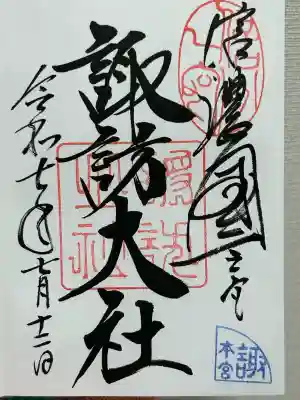 信濃國一之宮
諏訪大社
令和七年七月十二日
諏訪大社
諏
本宮